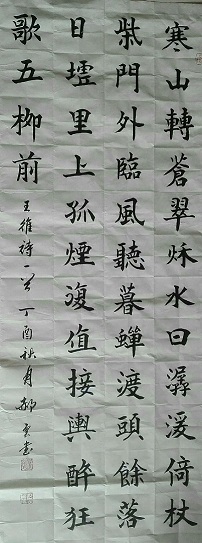 寒山轉蒼翠秋水日潺湲倚杖
柴門外臨風聽暮蟬渡頭餘落
日墟里上孤煙復值接輿醉狂
歌五柳前
王維詩一首丁酉秋月郝書